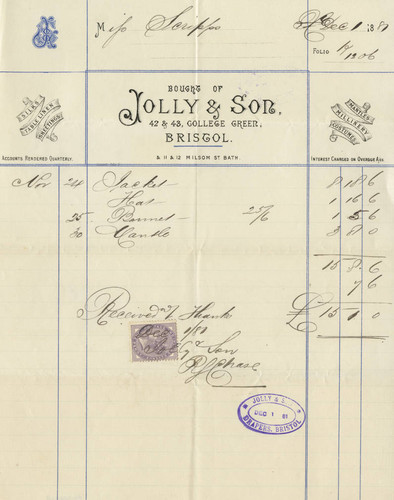 Miss Scripps Dec 1 1881
FOLIO 1306
BOUGHT OF
JOLLY & SON,
42 & 43, COLLEGE GREEN,
BRISTOL.
SILKS
TABLE LINEN
SHEETINGS
MANTLES
MILLINERY
COSTUMES
ACCOUNTS RENDERED QUARTERLY.
& 11 & 12 MILSOM ST BATH.
INTEREST CHARGED ON OVERDUE A/CS.
Nov 24 Jacket 8 18 6
Hat 1 16 6
25 Bonnet 25/6 1 5 6
30 Mantle 3 8 0
15 8 6
7 6
£15 1 0
Received with Thanks
Jolly & Son
JOLLY & S.
DEC 1 81
DRAPERS, BRISTOL